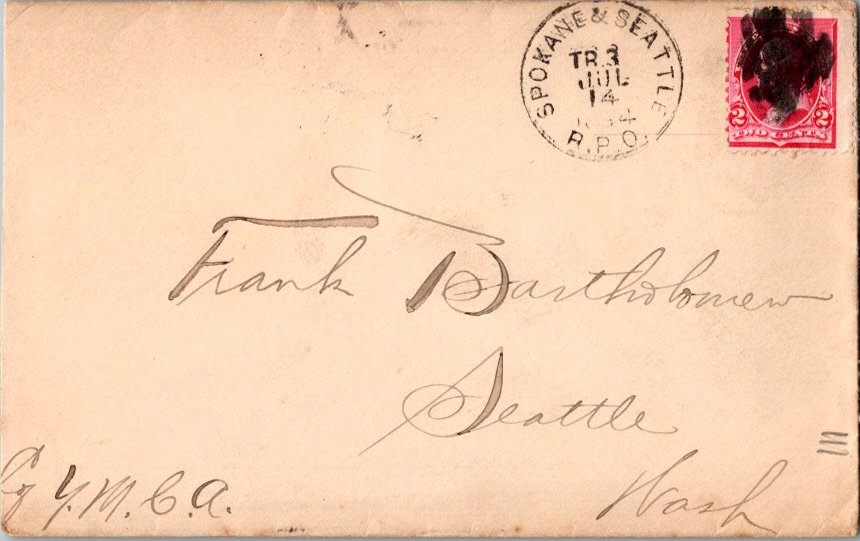 SPOKANE & SEATTLE
TR 3
JUL
14
R.P.O.
2 2
TWO CENTS
Frank Bartholomew
Seattle
Wash
Y.M.C.A.